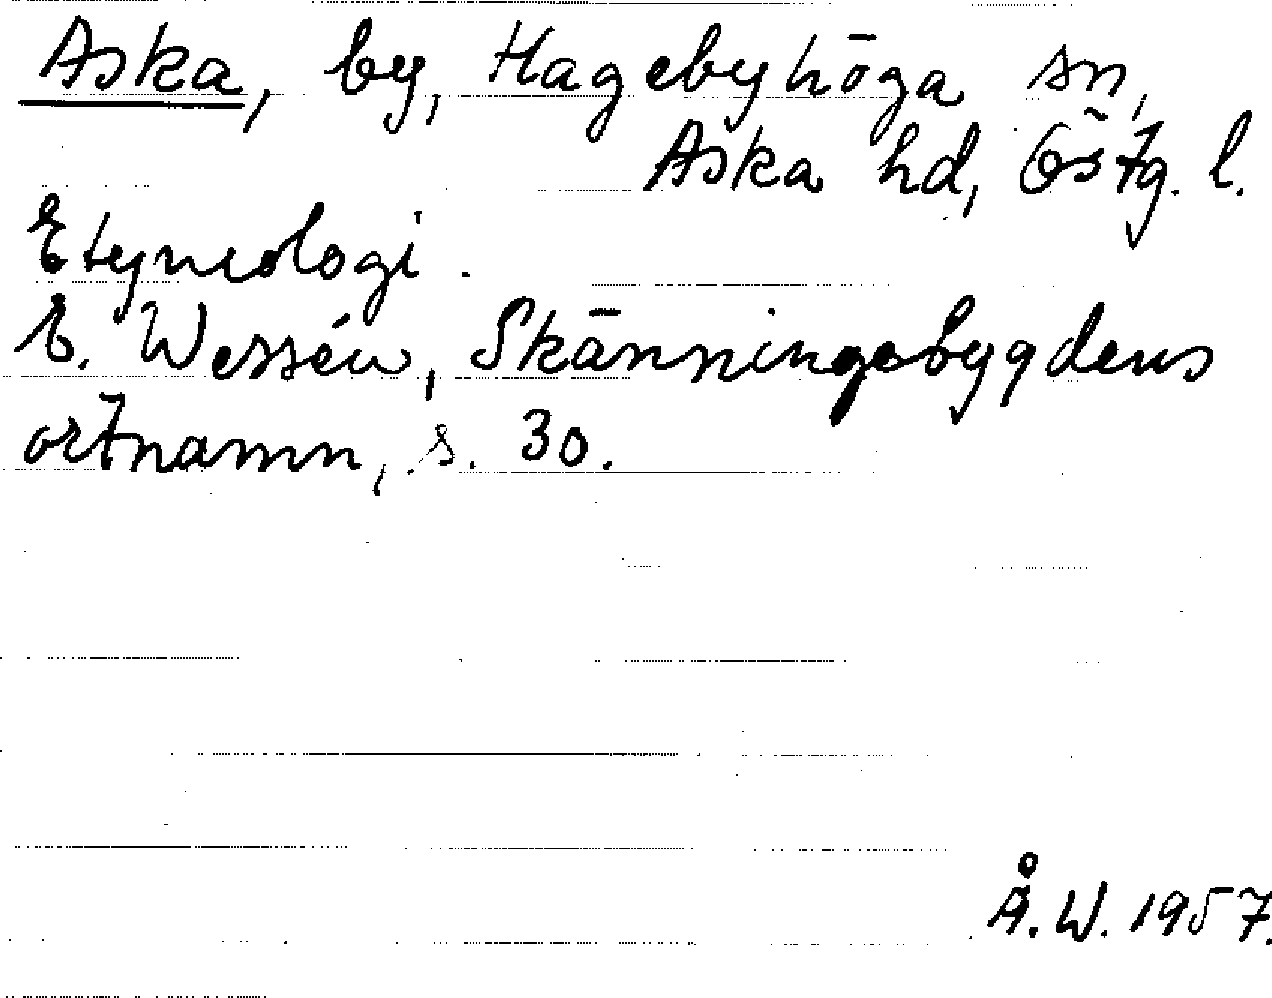 Aska, by, Hagebyhöga sn,
Aska hd, Östg. l.
Etymologi.
E. Wessén, Skänningebygdens
ortnamn, s. 30.
Å. W. 1957.